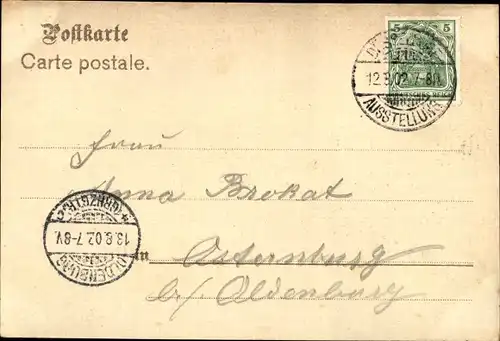 Postkarte
Carte postale.
5 5
12.8.02.7-8N.
AUSSTELLUNG
Frau
Anna Brokat
in Osternburg
b/ Oldenburg
13.8.02.7-8V.
OLDENBURG